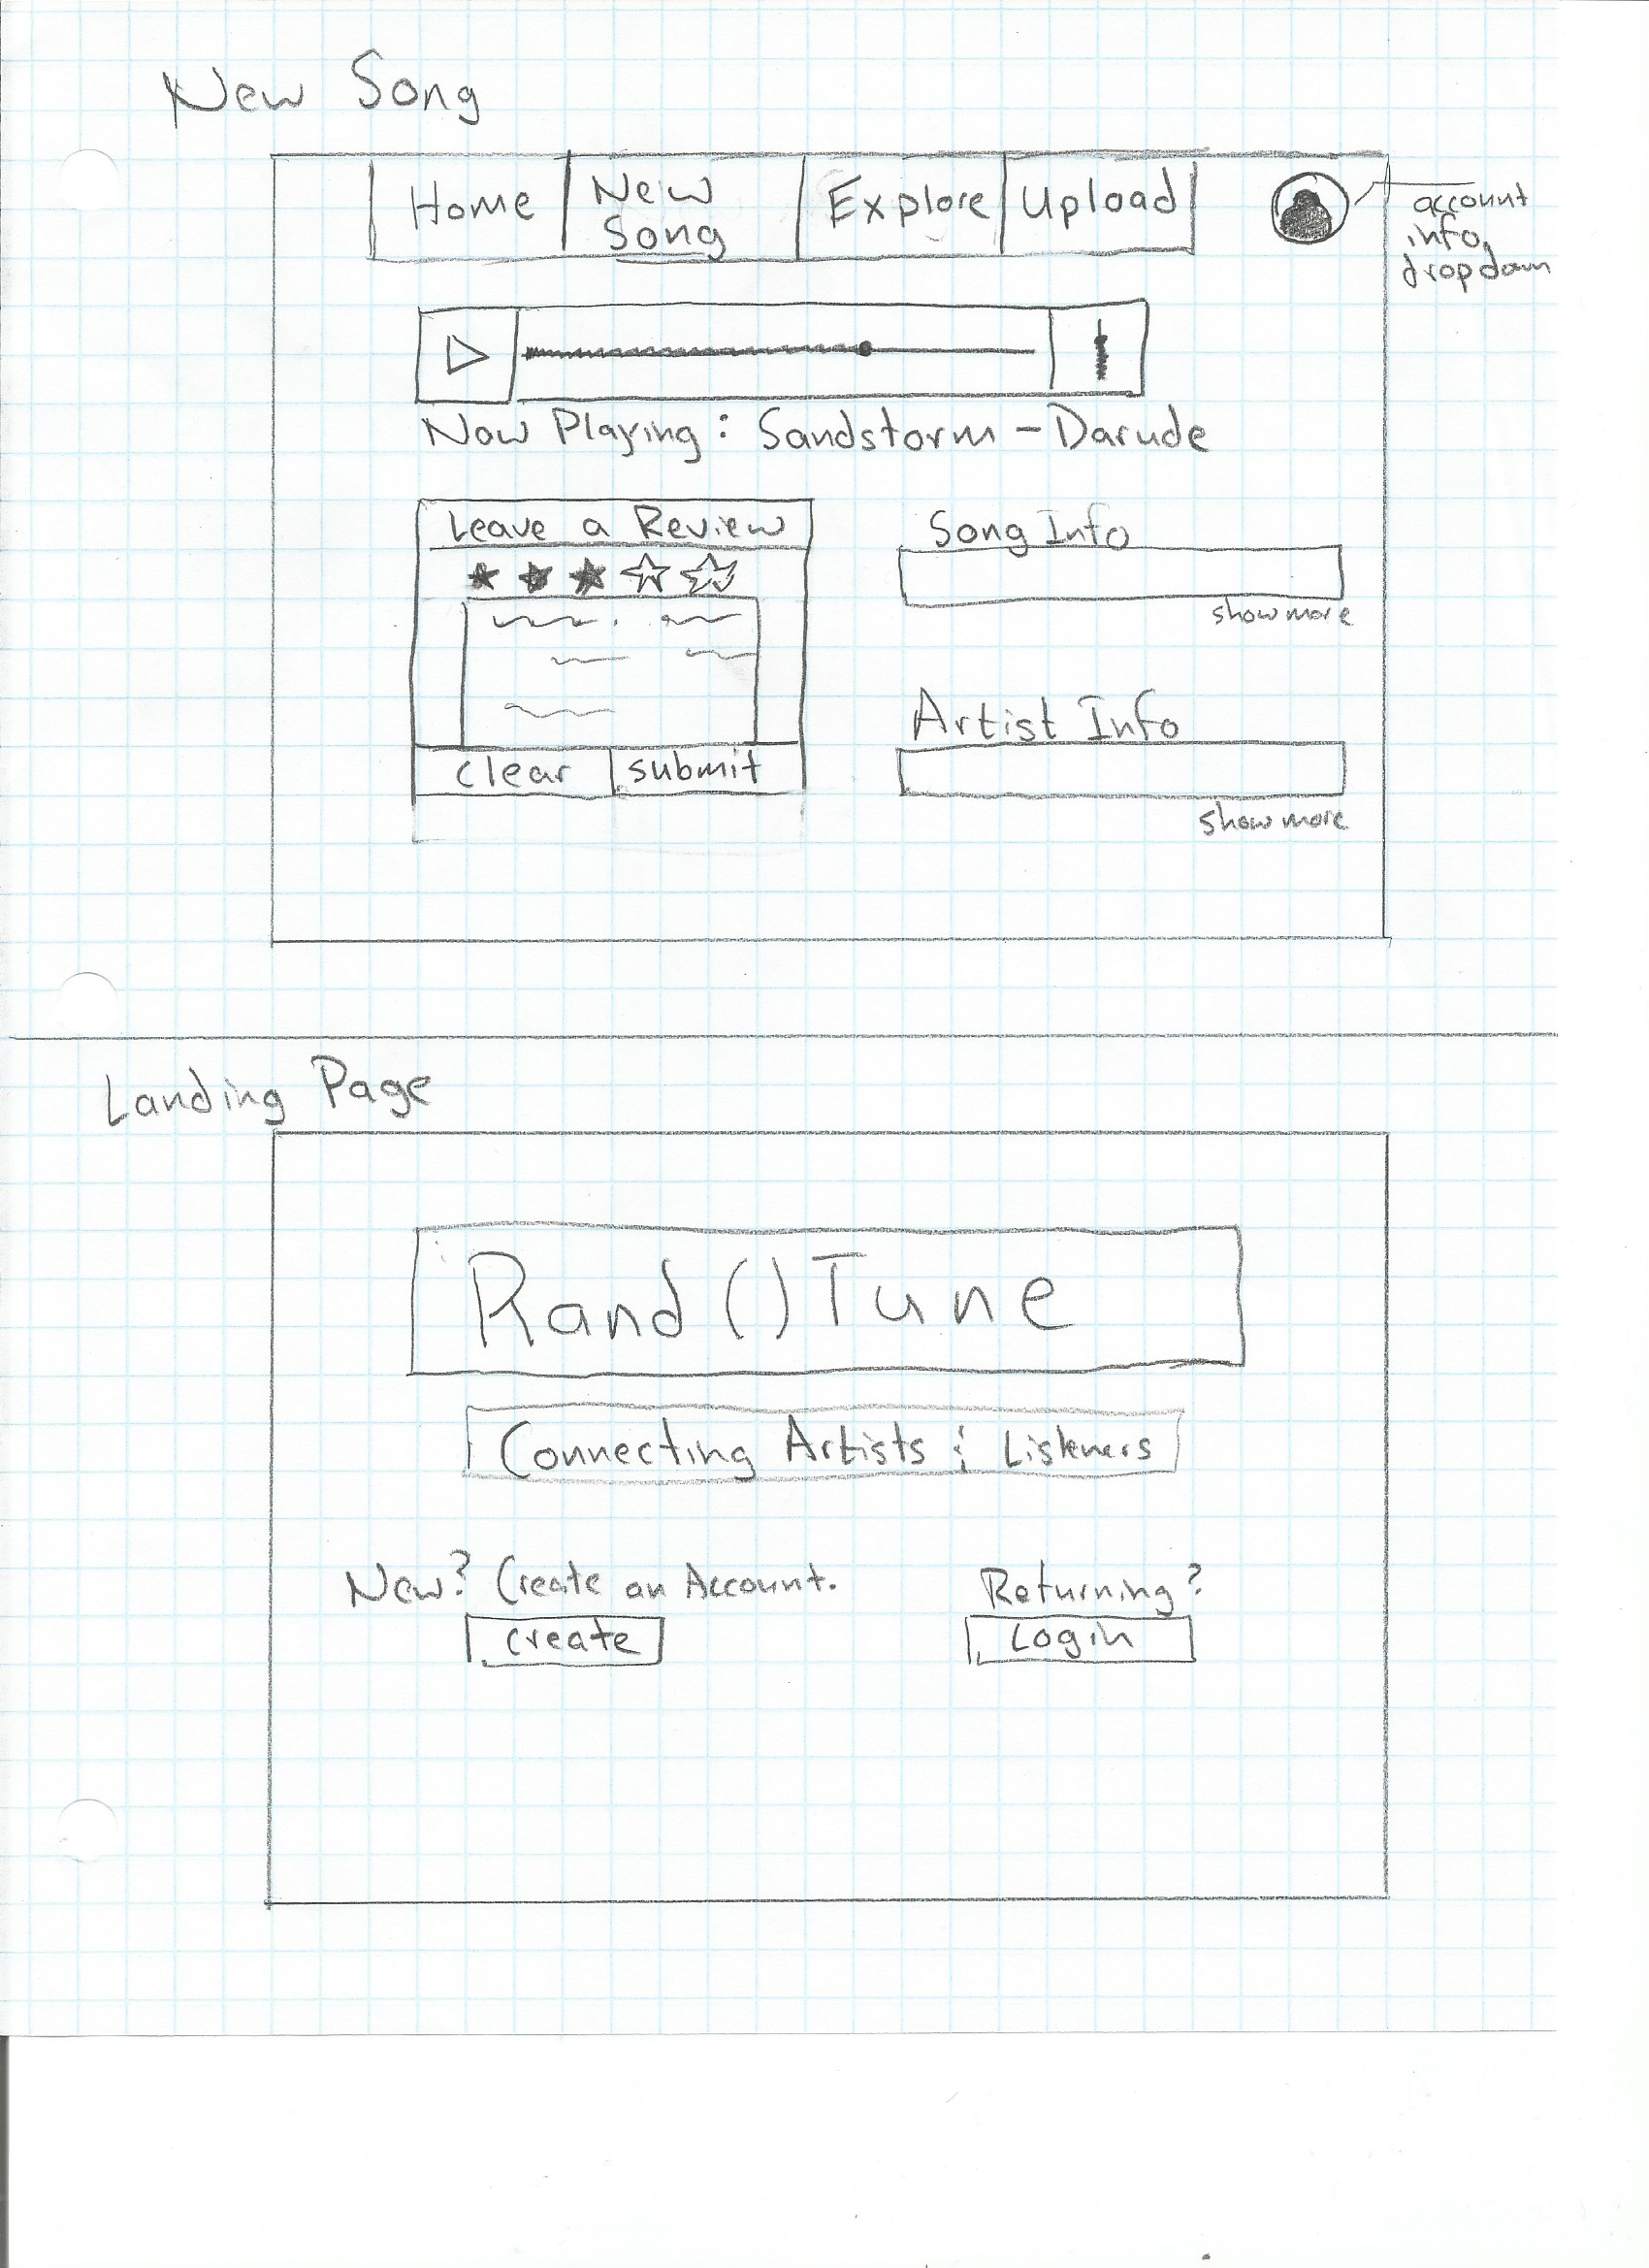 New Song
Home
New
Song
Explore
Upload
account
info,
dropdown
Now Playing: Sandstorm - Darude
Leave a Review
clear
submit
Song Info
show more
Artist Info
show more
Landing Page
Rand()Tune
Connecting Artists & Listeners
New? Create an Account.
create
Returning?
Login